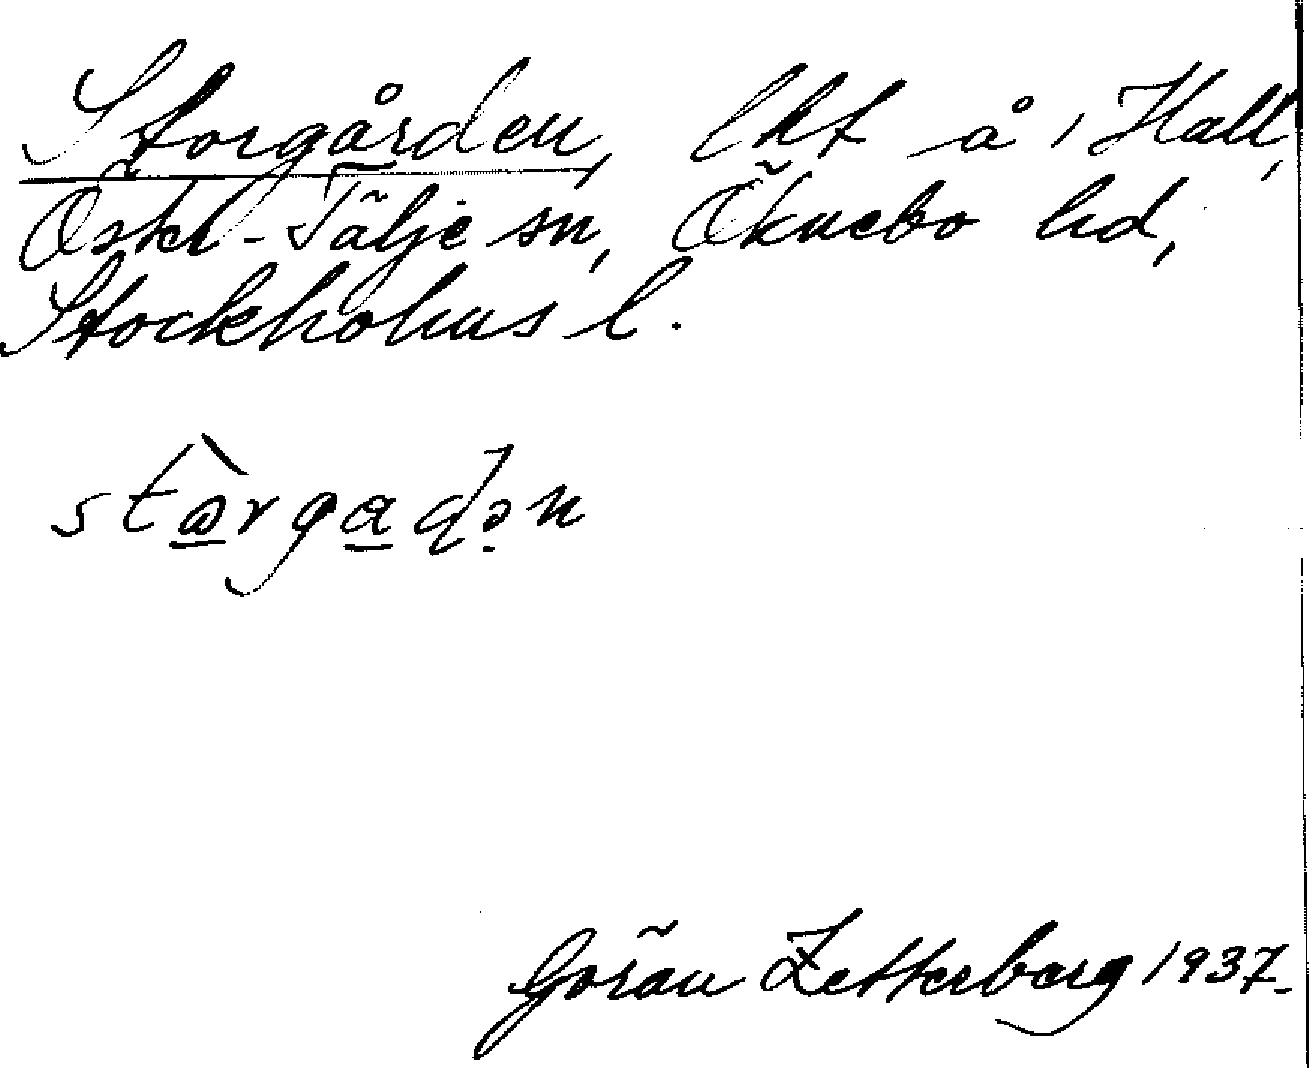 Storgården, lht å 1 Hall,
Öster-Tälje sn, Öknebo hd,
Stockholms l.
stɷ̀rgaḍən
Göran Zetterberg 1937.